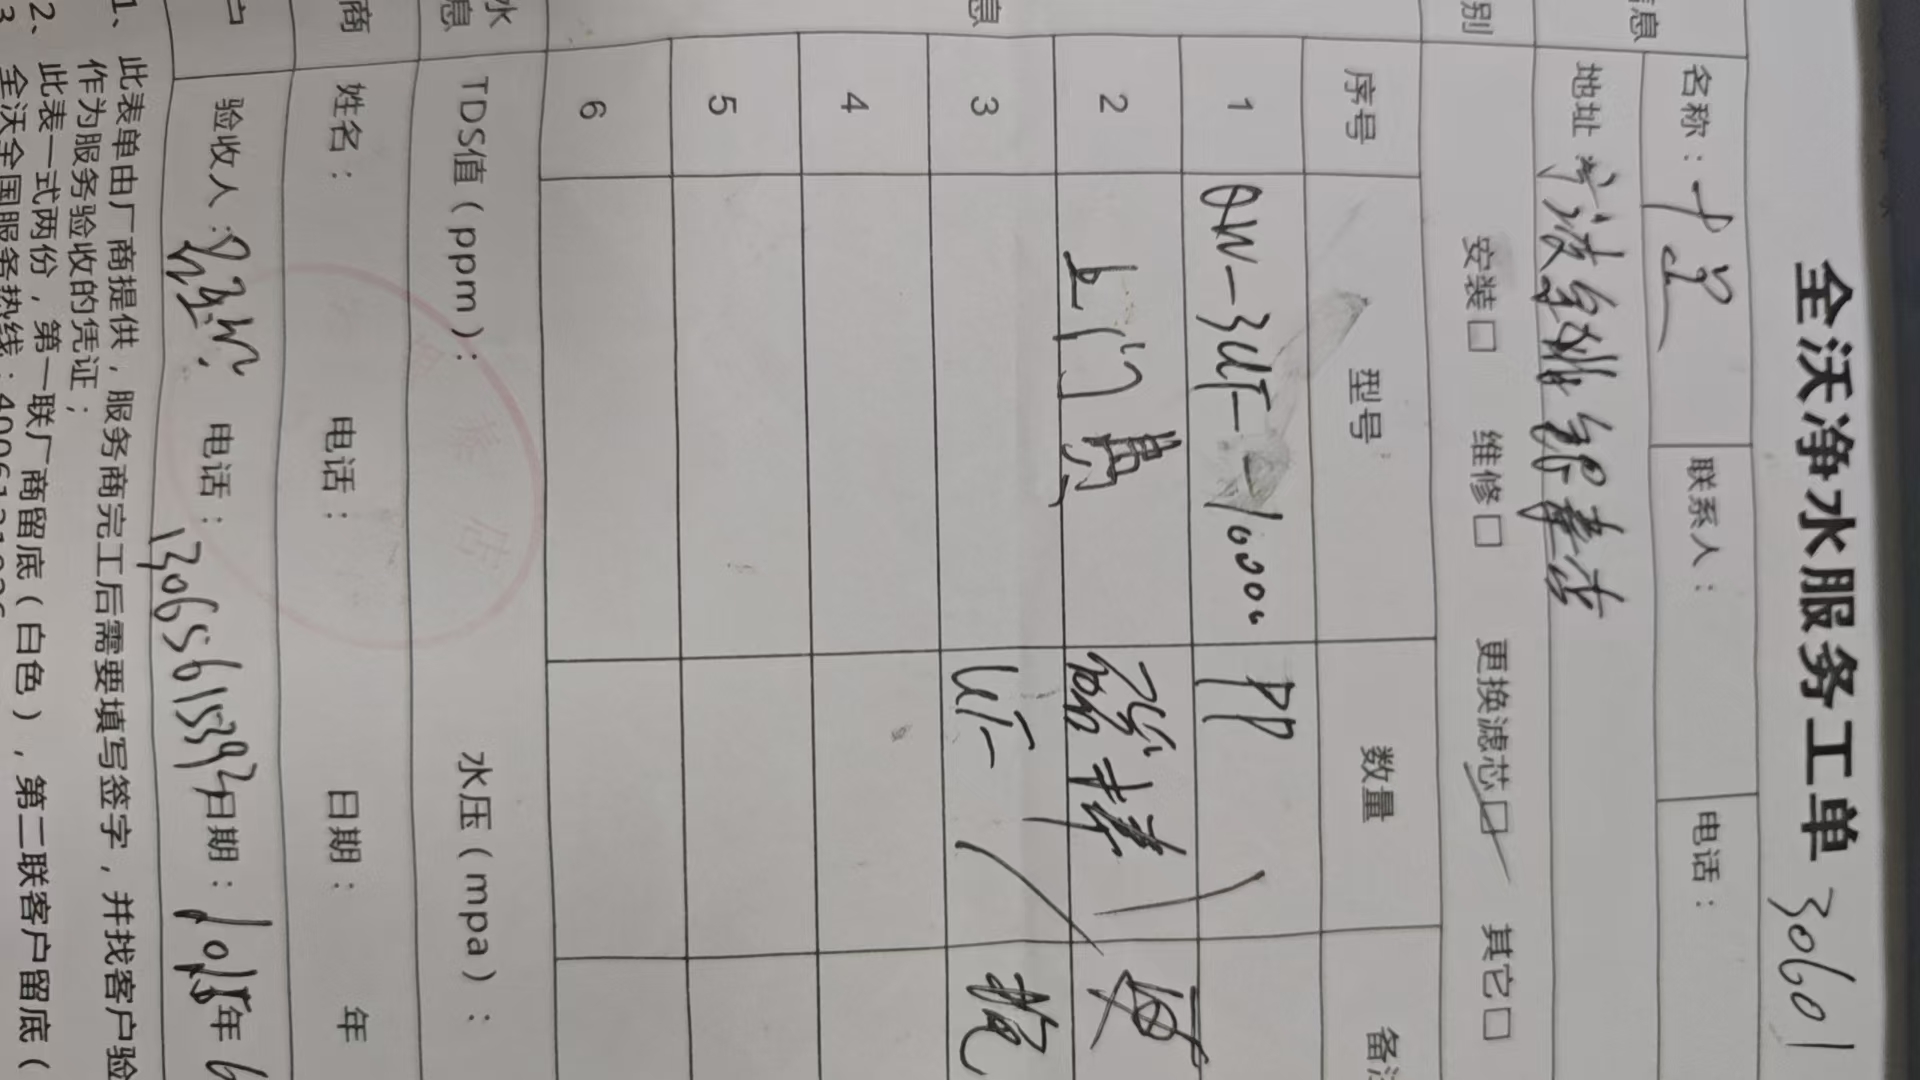 全沃净水服务工单 30601
息
名称：
联系人：
电话：
地址
别
安装□ 维修□ 更换滤芯□ 其它□
息
序号 型号 数量 备注
1 QW-3UF- PP
2 上门费 更
3 UF 换
4
5
6
水
息
TDS值（ppm）： 水压（mpa）：
商
姓名： 电话： 日期： 年
户
验收人： 电话：13065615392 日期： 年 6
1、此表单由厂商提供，服务商完工后需要填写签字，并找客户验
作为服务验收的凭证；
2、此表一式两份，第一联厂商留底（白色），第二联客户留底（
3 全沃全国服务热线：